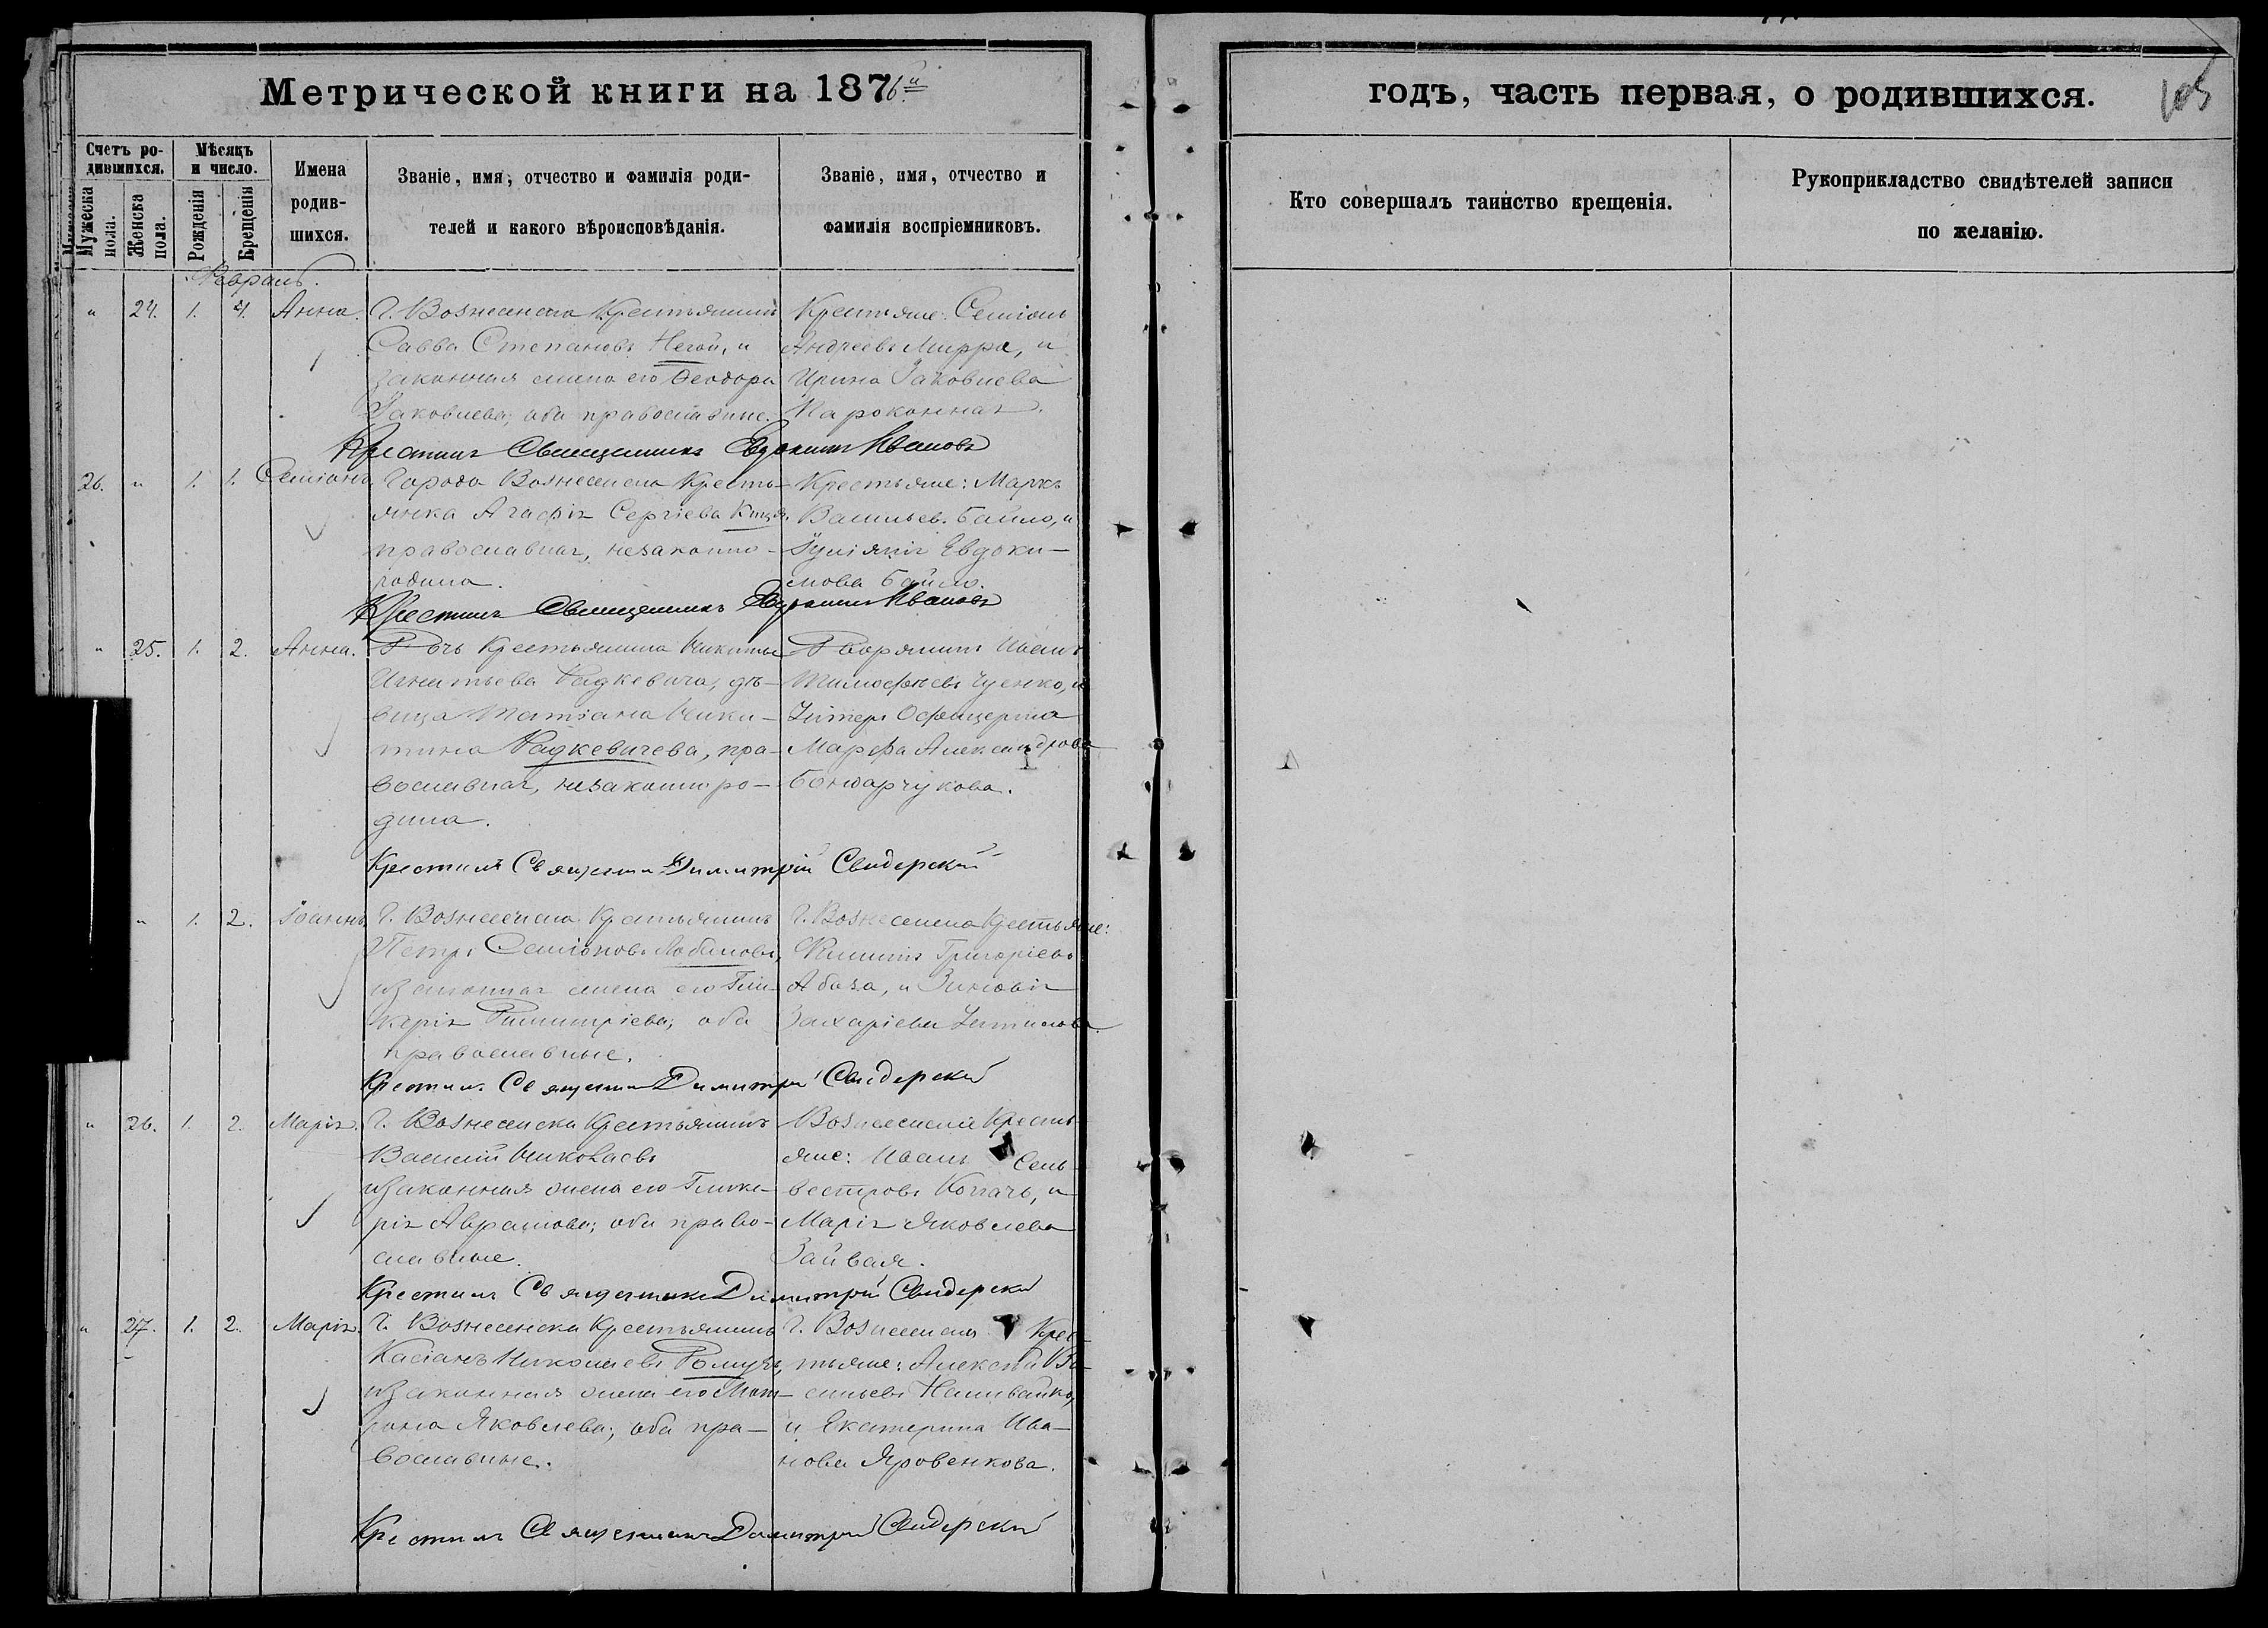 Метрической книги на 1876й
годъ, часть первая, о родившихся.
105
Счетъ ро-
дившихся.
Мужеска
пола.
Женска
пола.
Мѣсяцъ
и число.
Рожденія
Крещенія
Имена
родив-
шихся.
Званіе, имя, отчество и фамилія роди-
телей и какого вѣроисповѣданія.
Званіе, имя, отчество и
фамилія воспріемниковъ.
Кто совершалъ таинство крещенія.
Рукоприкладство свидѣтелей записи
по желанію.
Февраль.
" 24. 1. 4. Анна.
Г. Вознесенска Крестьянинъ
Савва Степановъ и
законная жена его Ѳеодора
Іаковлева; оба православные.
Крестьяне: Семіонъ
Андреевъ Мирра, и
Ирина Іаковлева
Крестилъ Священникъ Евдокимъ Ивановъ
26. " 1. 1. Семіонъ.
Города Вознесенска Кресть-
янка Агафія Сергіева
православная, незаконно-
родила.
Крестьяне: Маркъ
Васильевъ Байло, и
Іуліянія Евдоки-
мова Байло.
Крестилъ Священникъ Евдокимъ Ивановъ
" 25. 1. 2. Анна.
Дочь Крестьянина Никиты
Игнатьева Радкевича, дѣ-
вица Татіана Ники-
тина Радкевичева, пра-
вославная, незаконно ро-
дила.
Дворянинъ Иванъ
Тимофѣевъ Чуенко, и
Унтеръ Офицерша
Марфа Александрова
Бондарчукова.
Крестилъ Священникъ Димитрій Свидерскій
" 1. 2. Іоаннъ.
Г. Вознесенска Крестьянинъ
Петръ Семіоновъ Лобановъ,
и законная жена его Гли-
керія Димитріева; оба
православные.
Г. Вознесенска Крестьяне:
Филиппъ Григоріевъ
Абаза, и Зиновія
Захаріева
Крестилъ Священникъ Димитрій Свидерскій
" 26. 1. 2. Марія.
Г. Вознесенска Крестьянинъ
Василій Николаевъ
и законная жена его Глике-
рія Аврамова; оба право-
славные.
Вознесенскіе Кресть-
яне: Иванъ Сель-
вестровъ Копачъ, и
Марія Яковлева
Зайвая.
Крестилъ Священникъ Димитрій Свидерскій
" 27. 1. 2. Марія.
Г. Вознесенска Крестьянинъ
Касіанъ Николаевъ
и законная жена его Мат-
рона Яковлева; оба пра-
вославные.
Г. Вознесенска Крес-
тьяне: Алексѣй Ва-
сильевъ Наливайко,
и Екатерина Ива-
нова Яровенкова.
Крестилъ Священникъ Димитрій Свидерскій